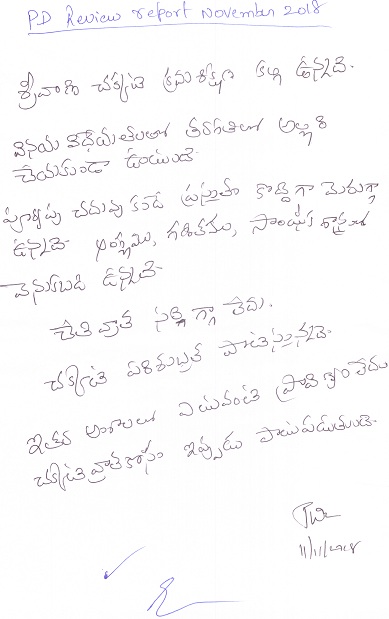 PD Review report November 2018
శ్రీవాణి చక్కటి క్రమశిక్షణ కల్గి ఉన్నది.
వినయ విధేయతలతో తరగతిలో అల్లరి
చేయకుండా ఉంటుంది.
పూర్వపు చదువు కంటే ప్రస్తుతం కొద్దిగా మెరుగ్గా
ఉన్నది. ఆంగ్లము, గణితము, సాంఘిక శాస్త్రంలో
వెనుకబడి ఉన్నది.
చేతి వ్రాత సరిగ్గా లేదు.
చక్కటి పరిశుభ్రత పాటిస్తున్నది.
ఇతర అంశాలలో ఎటువంటి ప్రావీణ్యం లేదు
చక్కటి వ్రాతకోసం ఇప్పుడు పాటుపడుతుంది.
11/11/2018